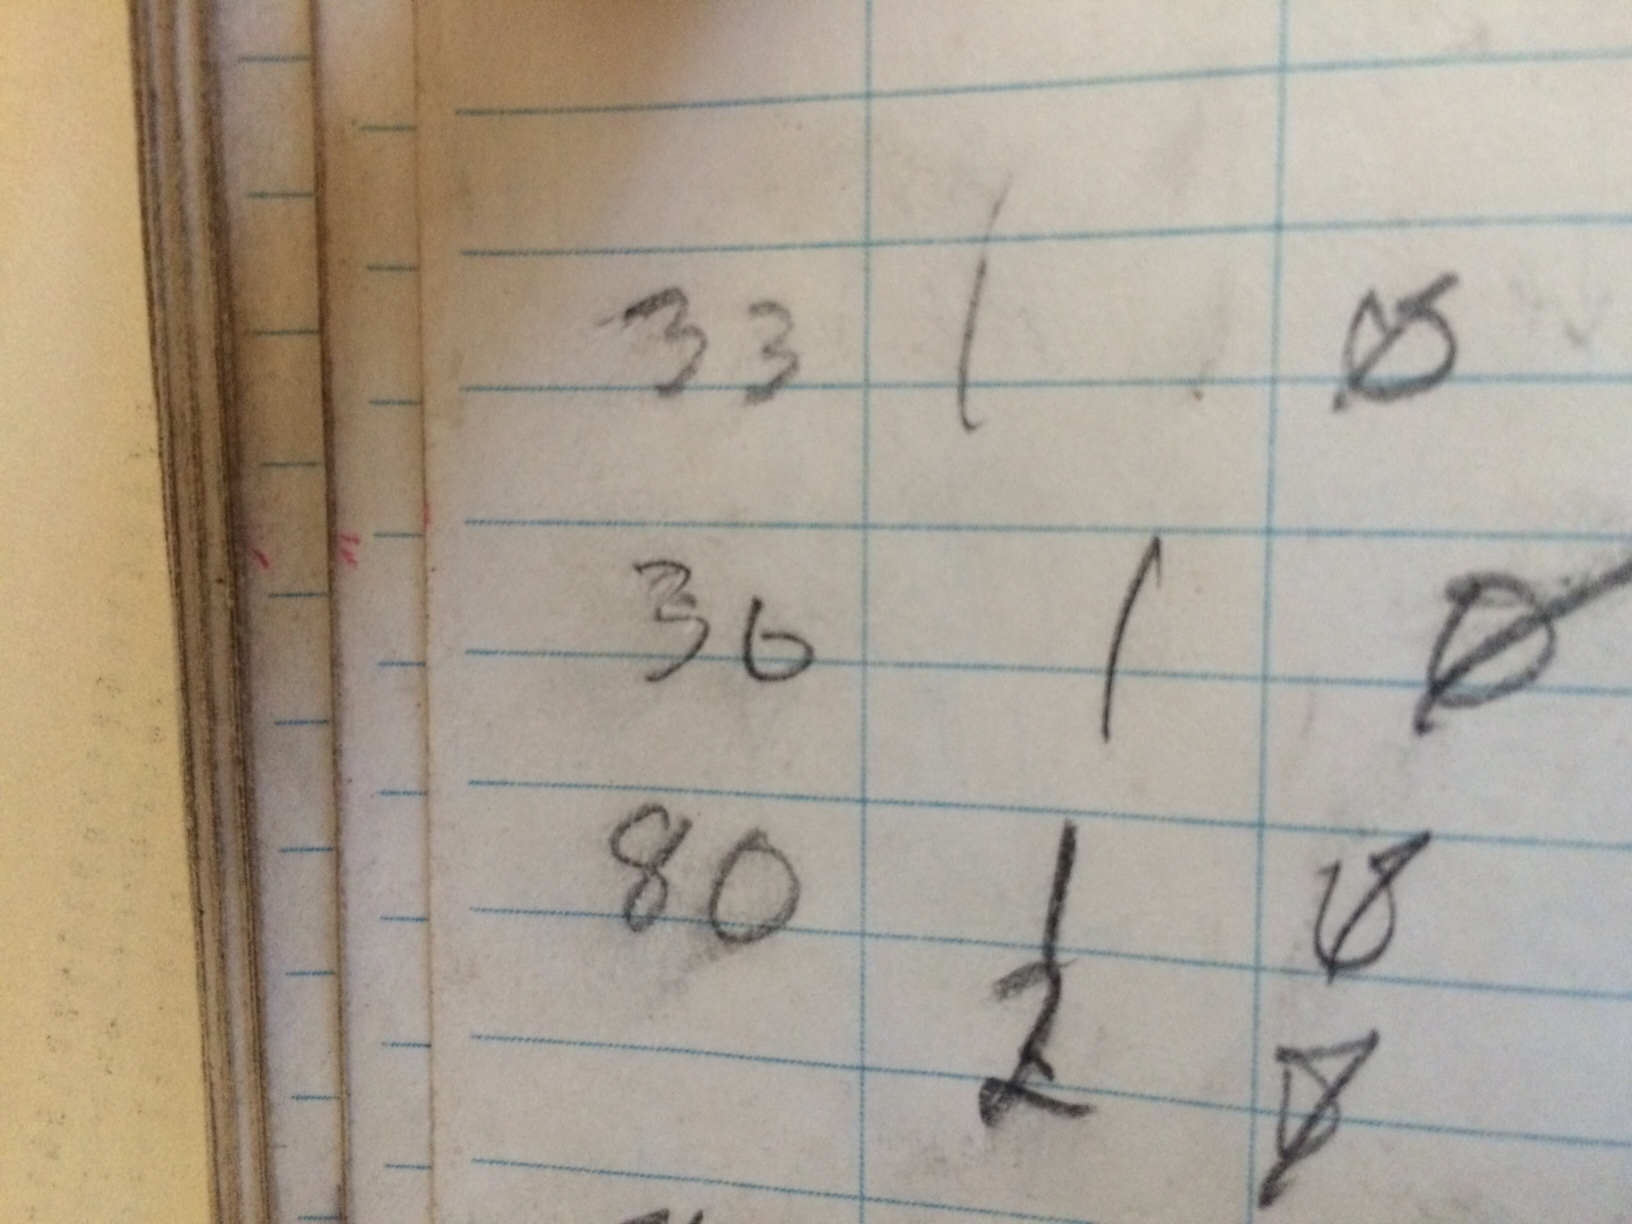 33 1 Ø
36 1 Ø
80 1 Ø
2 Ø